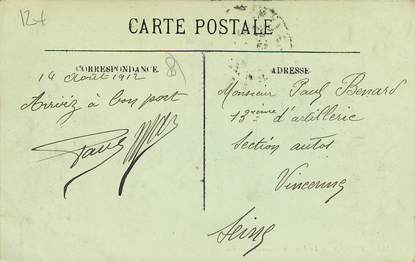 12+
CARTE POSTALE
CORRESPONDANCE
8
ADRESSE
14 Août 1912
Arrivez à bon port
Paul
Monsieur Paul Benard
13ème d'artillerie
Section autos
Vincennes
Seine